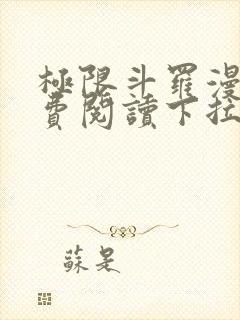 極限斗羅漫
費閱讀下拉
蘇是